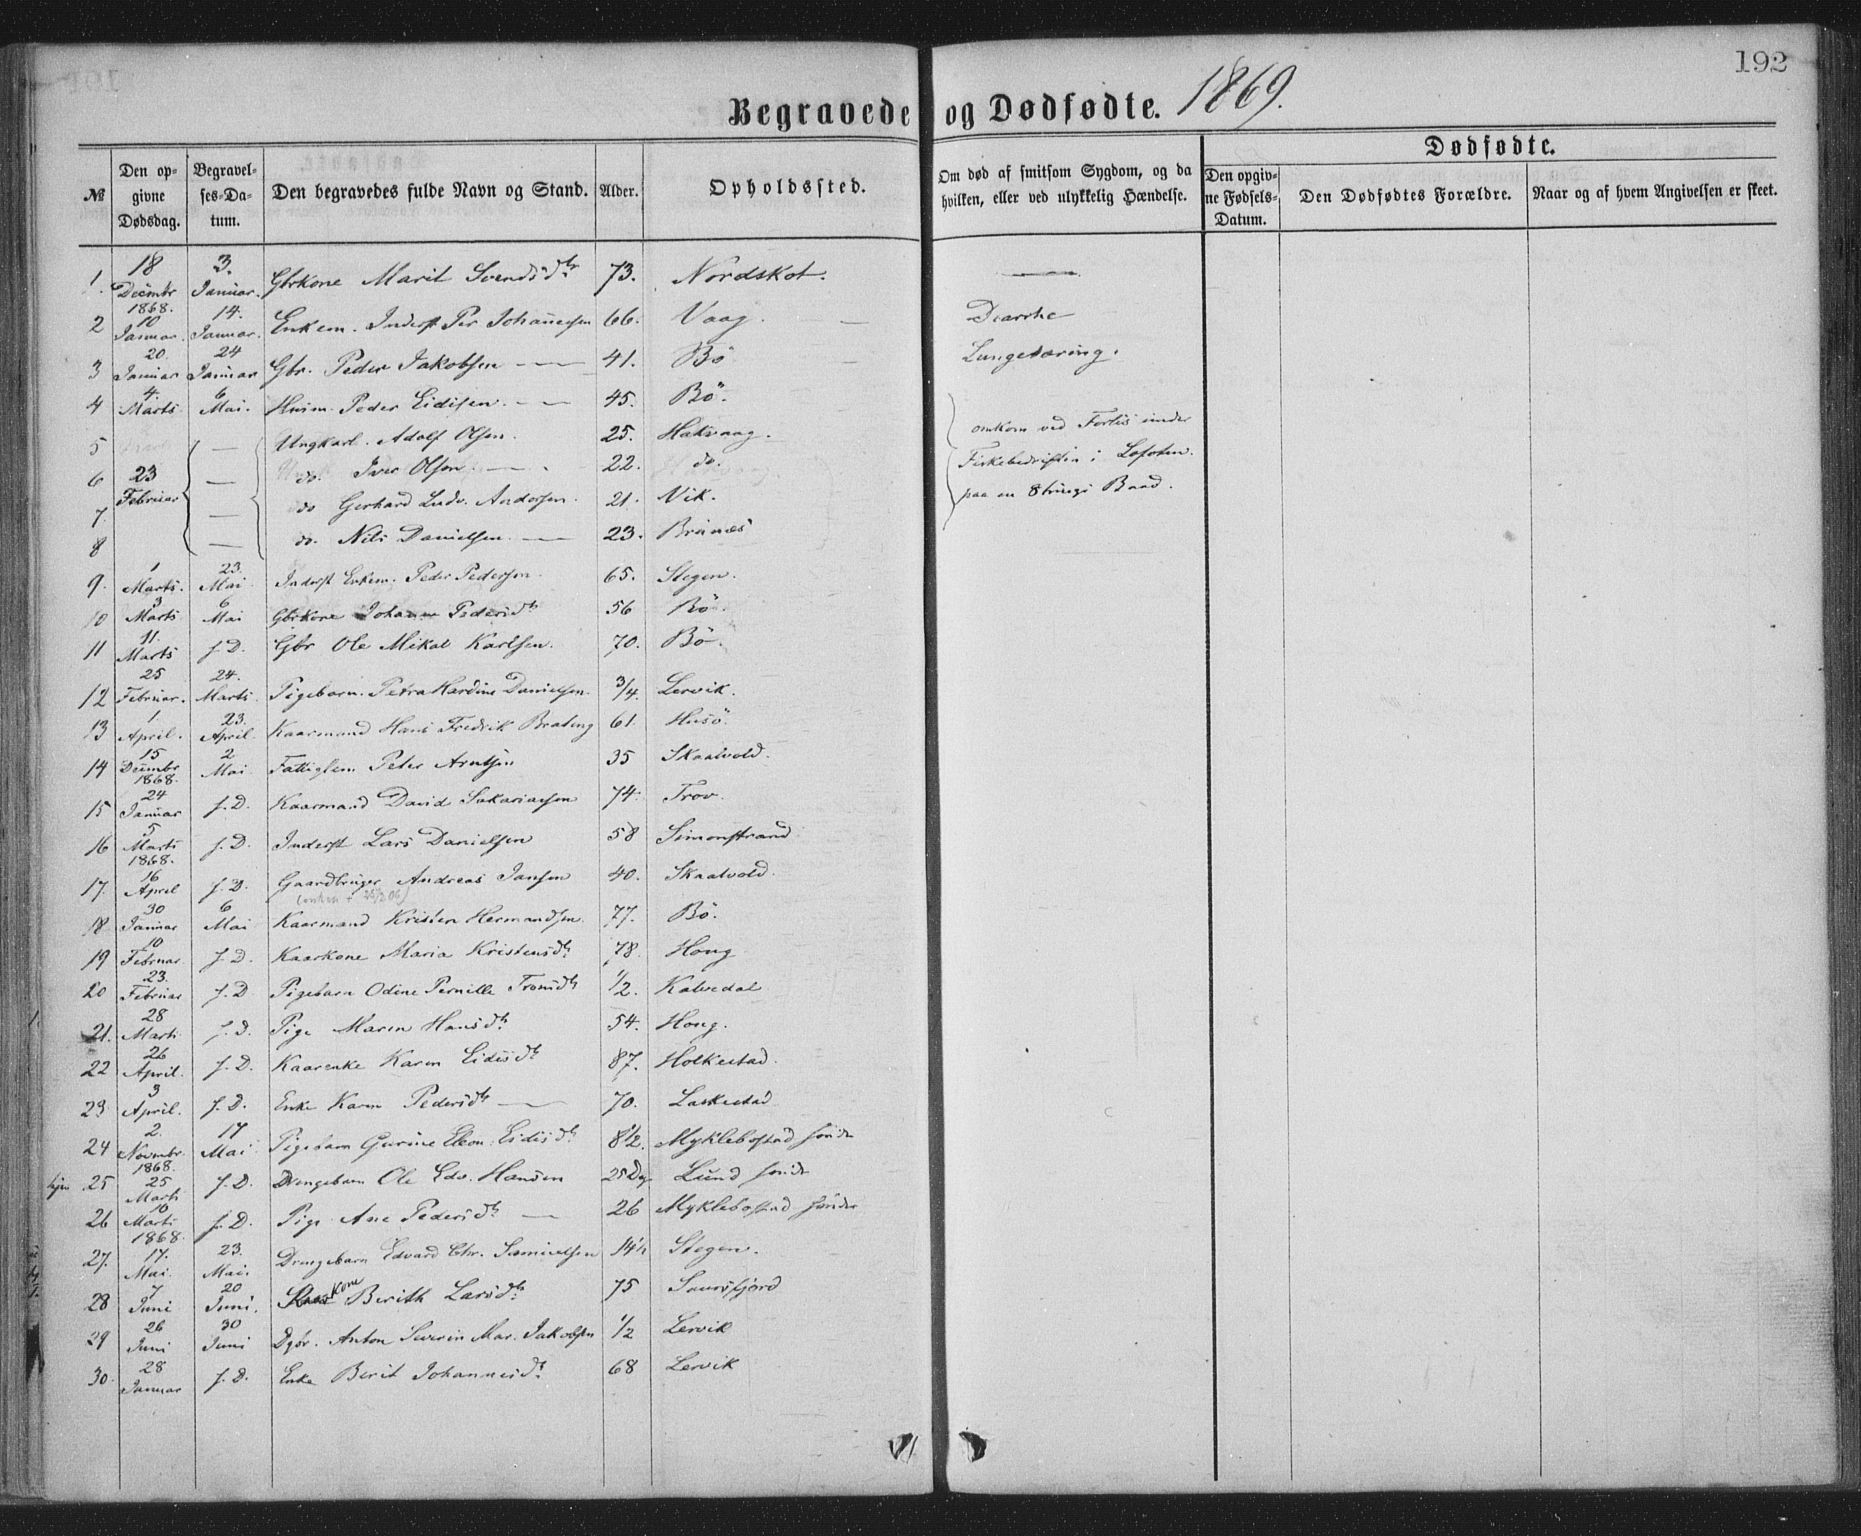 192
Begravede og Dødfødte. 1869.
Dødfødte.
№ Den opgivne Dødsdag. Begravelses-Datum. Den begravedes fulde Navn og Stand. Alder. Opholdssted. Om død af smitsom Sygdom, og da hvilken, eller ved ulykkelig Hændelse. Den opgivne Fødsels-Datum. Den Dødfødtes Forældre. Naar og af hvem Angivelsen er skeet.
1. 18 Decembr 1868. 3. Januar. Gbrkone Marit Svendsdtr 73. Nordskot. —
2 10 Januar. 14. Januar. Enkem. Inderst Per Johannesen 66. Vaag. — Diarrhe
3 20. Januar 24 Januar Gbr. Peder Jakobsen — 41. Bö — Lungetæring.
4 4. Marts 6 Mai. Huusm. Peder Eidisen. — 45. Bö.
5 — Ungkarl. Adolf Olsen. 25. Haksvaag. omkom ved Forlis under
6 23 Februar — do. Iver Olsen. — 22. do. Fiskebedriften i Lofoten.
7. — do Gerhard Ludv. Andersen. 21. Vik. paa en 8trings Baad.
8 — do. Nils Danielsen. — 23. Brunæs
9. 1 Marts. 23. Mai Inderst Enkem. Peder Pedersen. 65. Stegen.
10 3 Marts 6 Mai Gbrkone Johanna Pedersdtr 56 Bö
11 11. Marts f. D. Gbr Ole Mikal Karlsen. 70. Bö.
12 25 Februar. 24. Marts. Pigebarn. Petra Hardine Danielsen. 3/4. Lervik.
13 1 April. 23. April. Kaarmand Hans Fredrik Brateng 61. Husö.
14 15 Decembr 1868. 2 Mai Fattiglem Peter Arntsen 35 Skaalvold.
15 24 Januar f. D. Kaarmand David Sakariasen 74. Trov.
16 5 Marts 1868. f. D. Inderst Lars Danielsen 58 Simonstrand
17. 16 April f. D. Gaardbruger Andreas Jansen 40. Skaalvold.
18 30 Januar 6 Mai Kaarmand Kristen Hermandsen. 77. Bö.
19 10 Februar. f. D. Kaarkone Maria Kristensdtr 78. Hong
20 23. Februar f. D. Pigebarn Odine Pernille Tronsdtr 1/2. Kalvedal
21. 28 Marts f. D. Pige Maren Hansdtr. 54. Hong.
22 26 April. f. D. Kaarenke Karen Eidisdtr 87. Holkestad.
23 3 April. f. D. Enke Karen Pedersdtr — 70. Laskestad
24 2. Novembr. 1868. 17 Mai Pigebarn Gurine Eleon. Eidisdtr. 8 1/2. Myklebostad söndr
25 25 Marts f. D. Drengebarn Ole Edv. Hansen 25 Dag Lund söndr
26 10 Marts 1868. f. D. Pige Ane Pedersdtr — 26 Myklebostad söndre
27. 17. Mai. 23. Mai. Drengebarn Edvard Chr. Samuelsen 14 1/2 Stegen.
28 7 Juni 20 Juni. Kaarkone Berith Larsdtr. 75 Saursfjord
29 26 Juni 30 Juni Dgbr. Anton Severin Mar. Jakobsen 1/2 Lervik
30. 28 Januar f. D. Enke Berit Johannesdtr. 68 Lervik